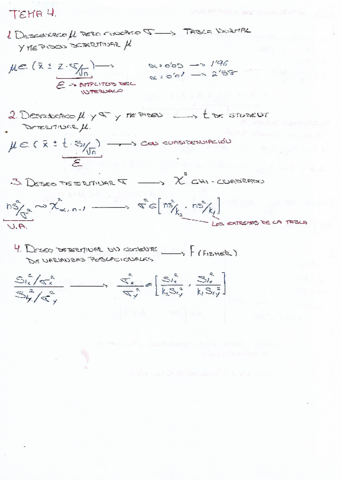 TEMA 4.
1. Desconozco μ pero conozco σ → TABLA NORMAL
Y ME PIDEN DETERMINAR μ
μ ∈ (x̄ ± z · σ/√n) → α = 0'05 → 1'96
α = 0'01 → 2'58
ε → AMPLITUD DEL INTERVALO
2. Desconozco μ y σ y me piden → t DE STUDENT
DETERMINAR μ.
μ ∈ (x̄ ± t · S₁/√n) → CON CUASIDESVIACIÓN
ε
3. DESEO DETERMINAR σ → χ² CHI-CUADRADO
nS²/σ² ~ χ²α, n-1 → σ² ∈ [nS²/k₂ , nS²/k₁]
V.A. LOS EXTREMOS DE LA TABLA
4. DESEO DETERMINAR UN COCIENTE → F (FISHER)
DE VARIANZAS POBLACIONALES
S₁ₓ²/σₓ² / S₁ᵧ²/σᵧ² → σₓ²/σᵧ² ∈ [S₁ₓ²/k₂S₁ᵧ² , S₁ₓ²/k₁S₁ᵧ²]